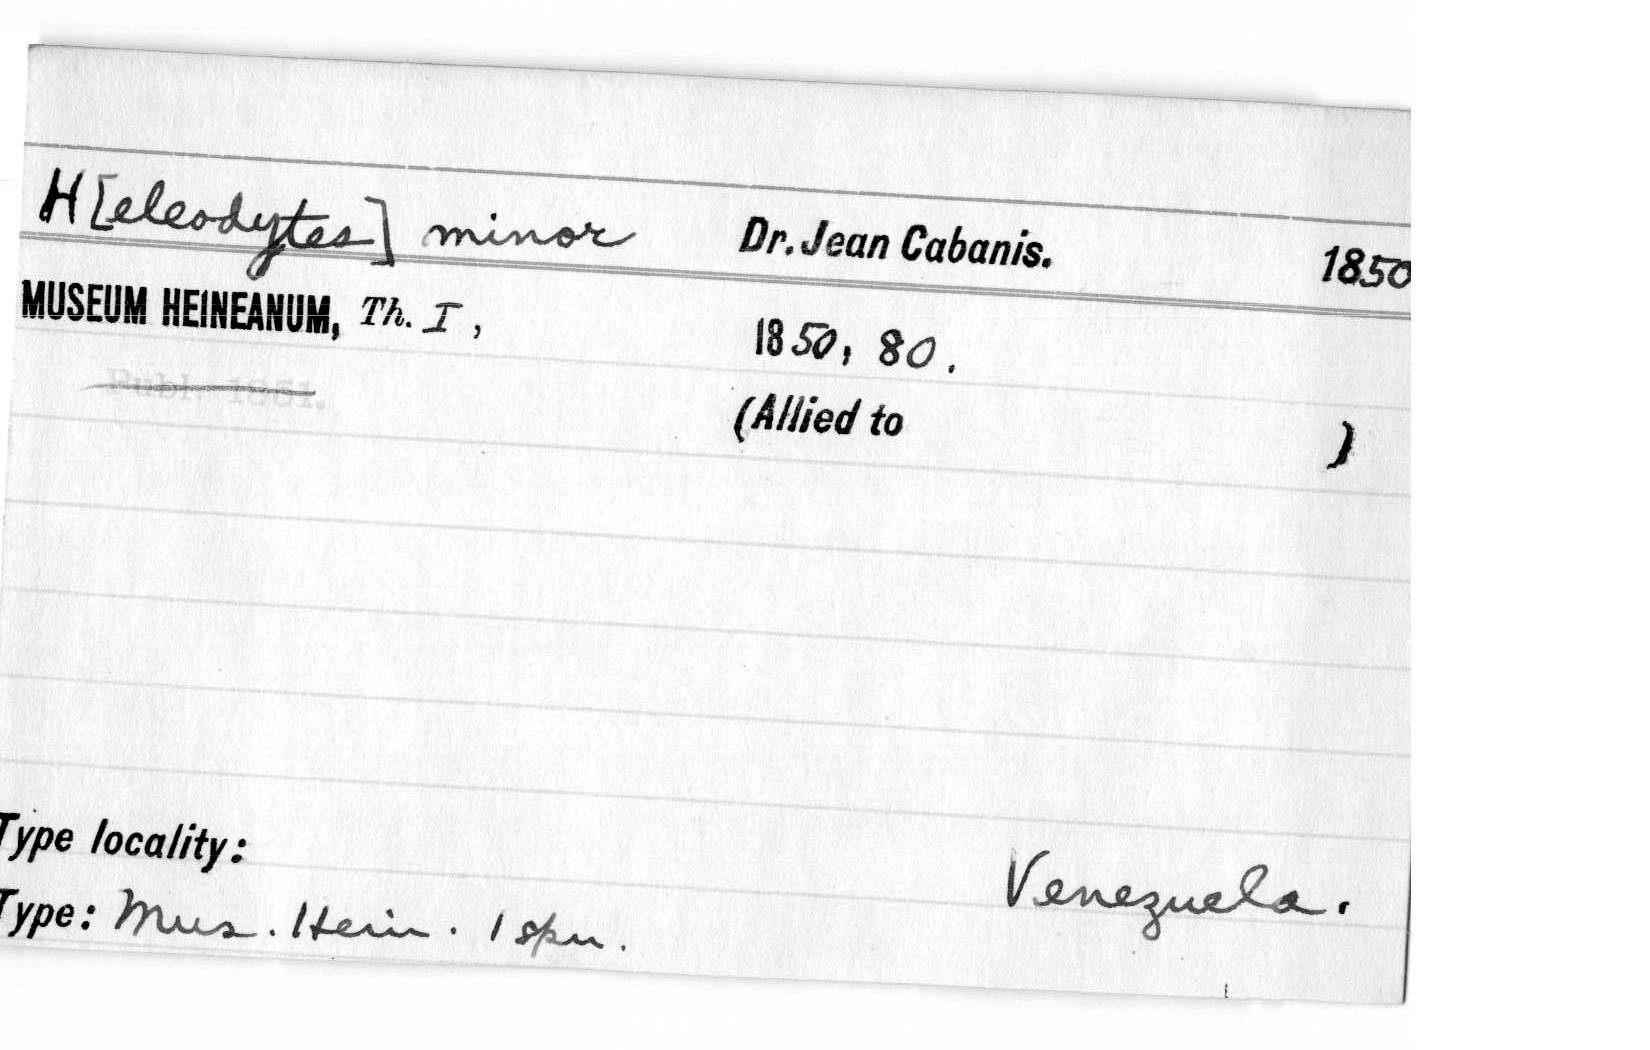 H[eleodytes] minor Dr. Jean Cabanis. 1850
MUSEUM HEINEANUM, Th. I, 1850, 80.
Publ. 1851.
(Allied to )
Type locality: Venezuela.
Type: Mus. Hein. 1 spn.